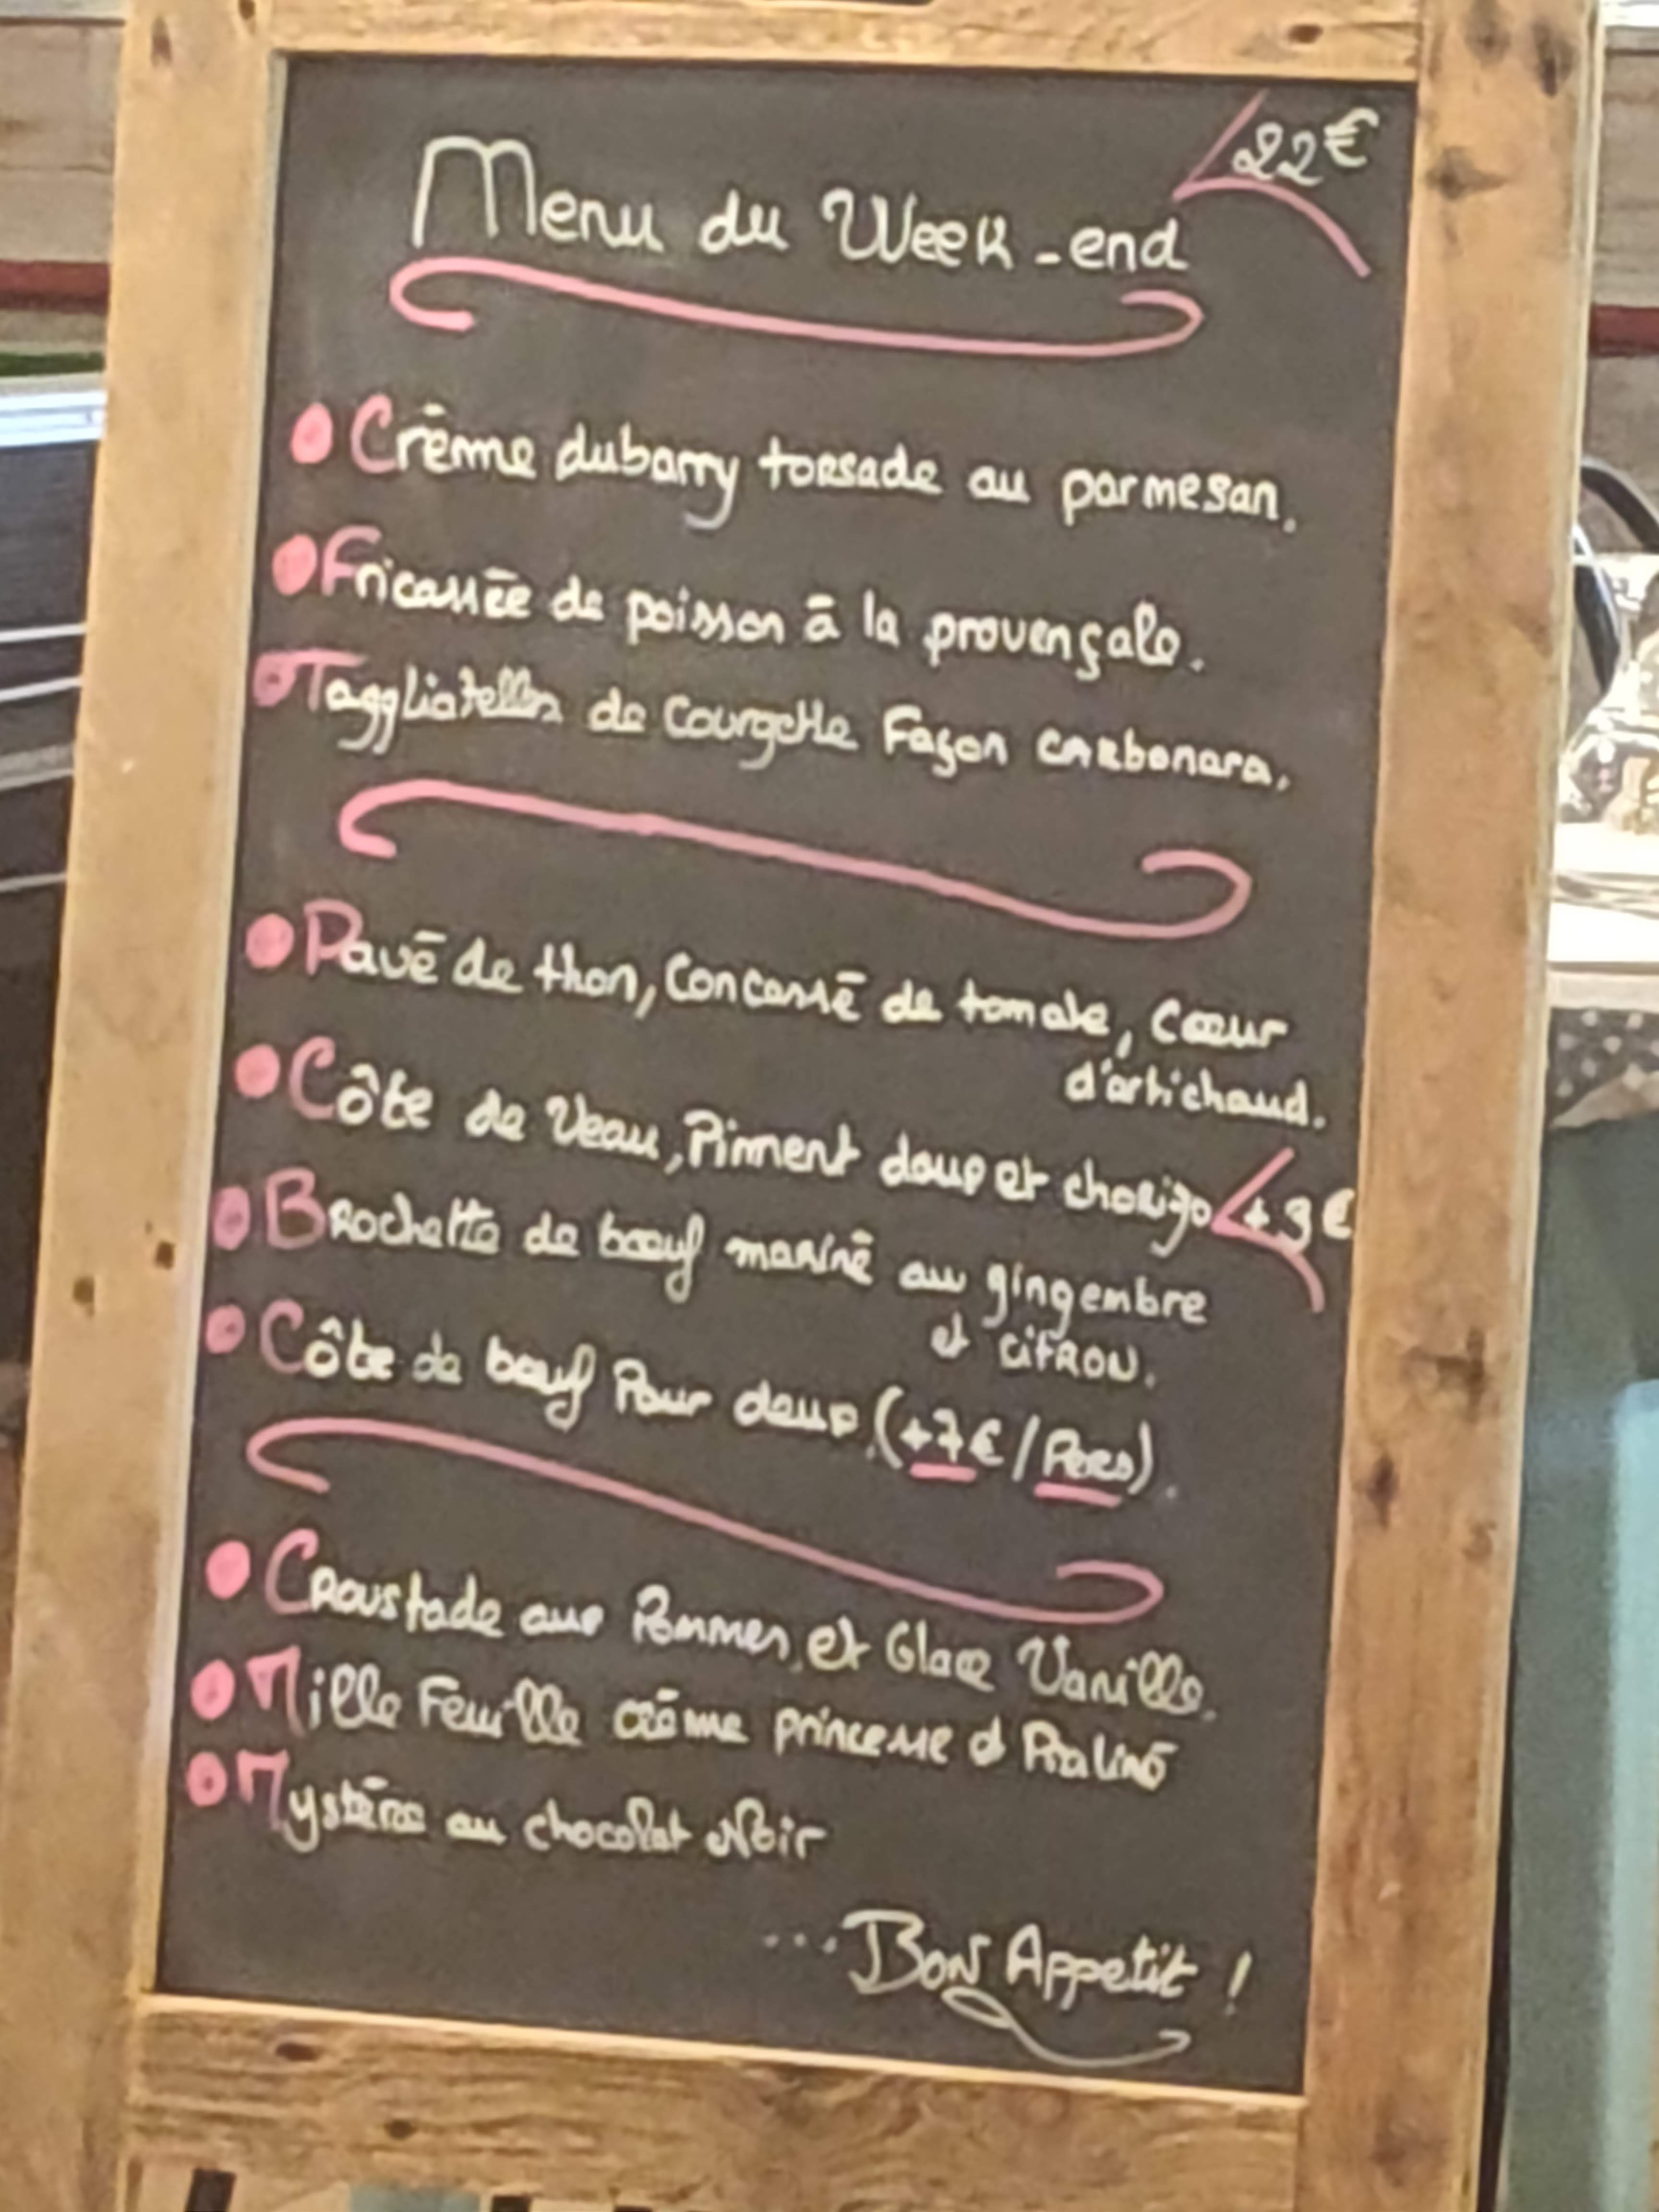 22€
Menu du Week-end
Crème dubarry torsade au parmesan.
Fricassée de poisson à la provençale.
Taggliatelles de Courgette Façon carbonara.
Pavé de thon, Concassé de tomate, Cœur
d'artichaud.
Côte de Veau, Piment doux et chorizo +3€
Brochette de bœuf mariné au gingembre
et citron.
Côte de bœuf Pour deux (+7€/Pers).
Croustade aux Pommes et Glace Vanille.
Mille Feuille crème princesse et Praliné
Mystère au chocolat Noir
...Bon Appetit !